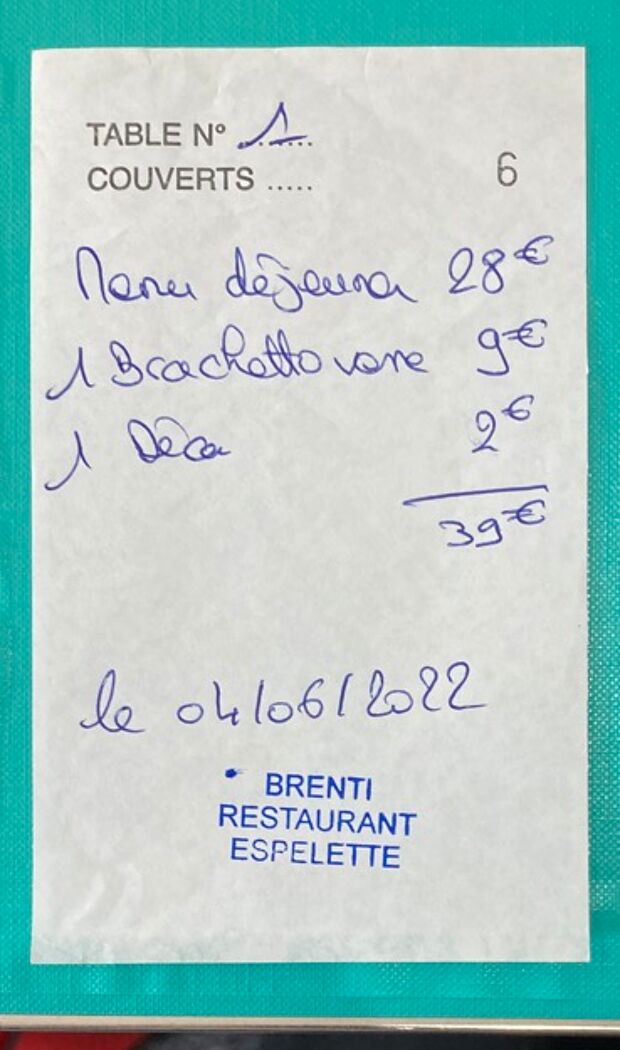 TABLE N° 1
COUVERTS ..... 6
Menu déjeuner 28€
1 Brachetto verre 9€
1 Déca 2€
39€
le 04/06/2022
BRENTI
RESTAURANT
ESPELETTE